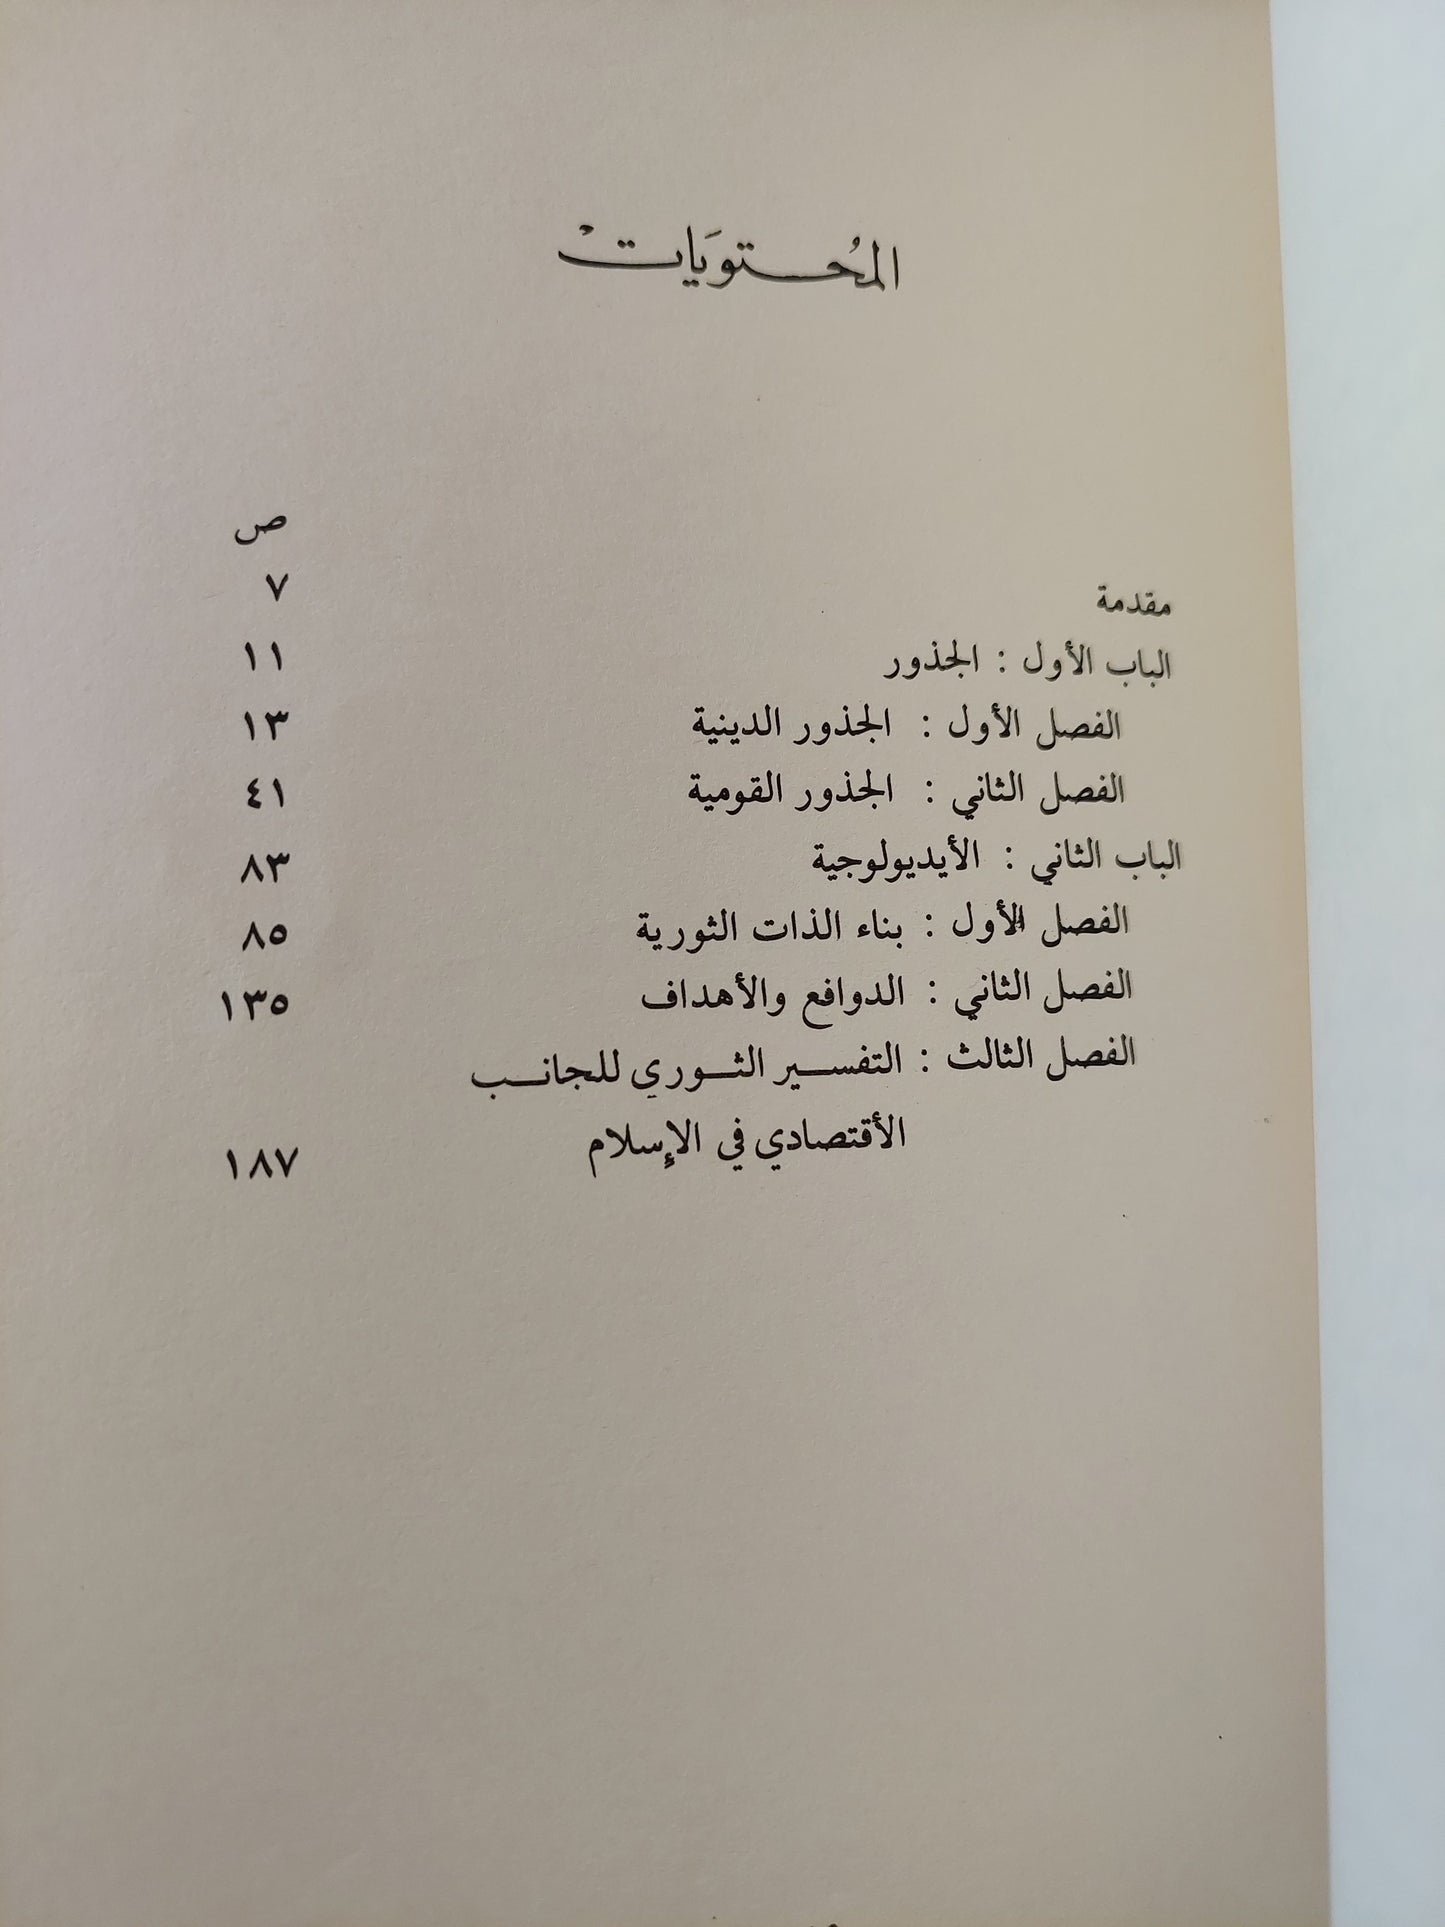 المُحتويَات
ص
مقدمة ٧
الباب الأول : الجذور ١١
الفصل الأول : الجذور الدينية ١٣
الفصل الثاني : الجذور القومية ٤١
الباب الثاني : الأيديولوجية ٨٣
الفصل الأول : بناء الذات الثورية ٨٥
الفصل الثاني : الدوافع والأهداف ١٣٥
الفصل الثالث : التفسير الثوري للجانب
الأقتصادي في الإسلام ١٨٧